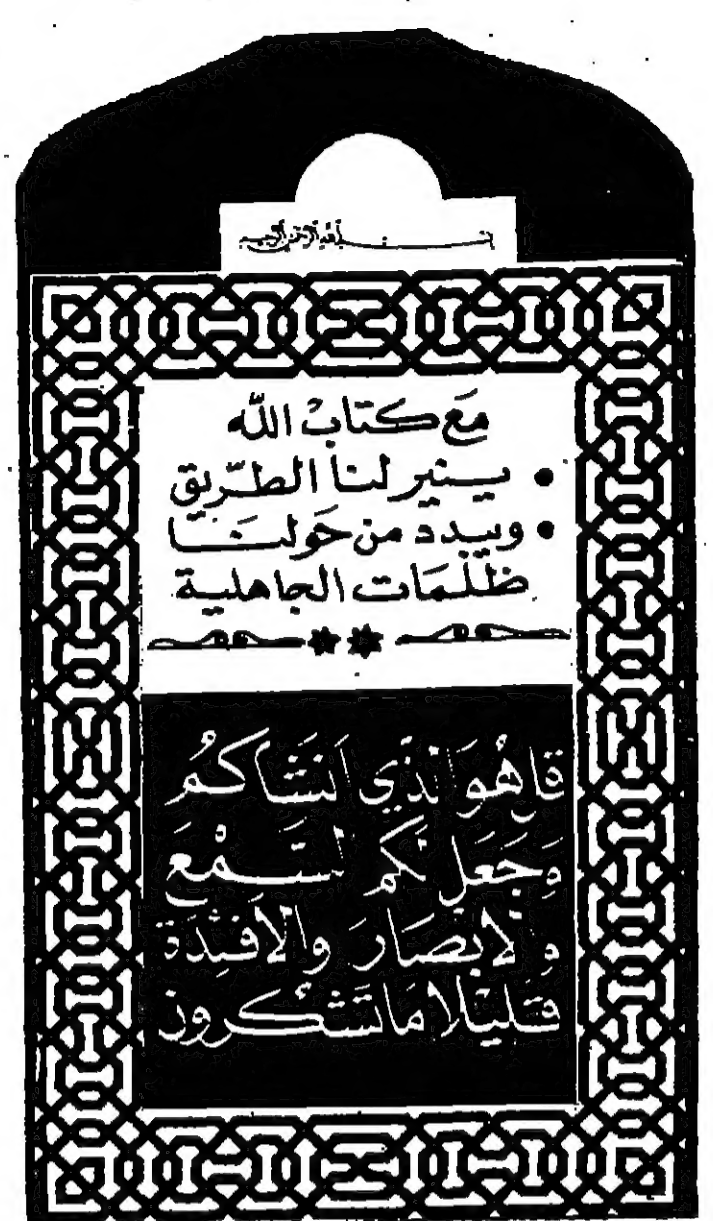 بسم الله الرحمن الرحيم
مَع كتابْ الله
• ينير لنا الطّريق
• ويبدد من حَولنَا
ظلمَات الجاهلية
قل هُوَ الذي انشَاكمُ
وَجَعَل لكم السَّمْعَ
والابْصَارَ والافئِدَة
قليْلا مَا تشْكرون